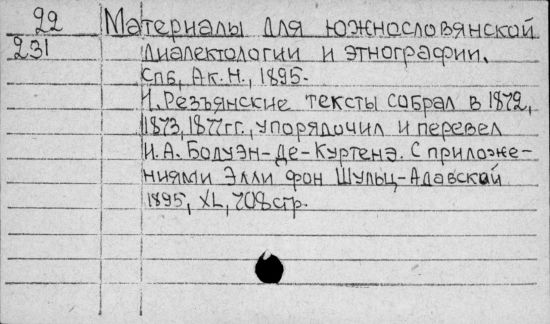 22 Материалы для южнословянской
231 диалектологии и этнографии.
СПБ, Ак.Н., 1895.
I. Резъянские тексты собрал в 1872,
1873, 1877 гг., упорядочил и перевел
И.А. Бодуэн-де-Куртенэ. С приложе-
ниями Элли фон Шульц-Адавской
1895, XL, 708 стр.